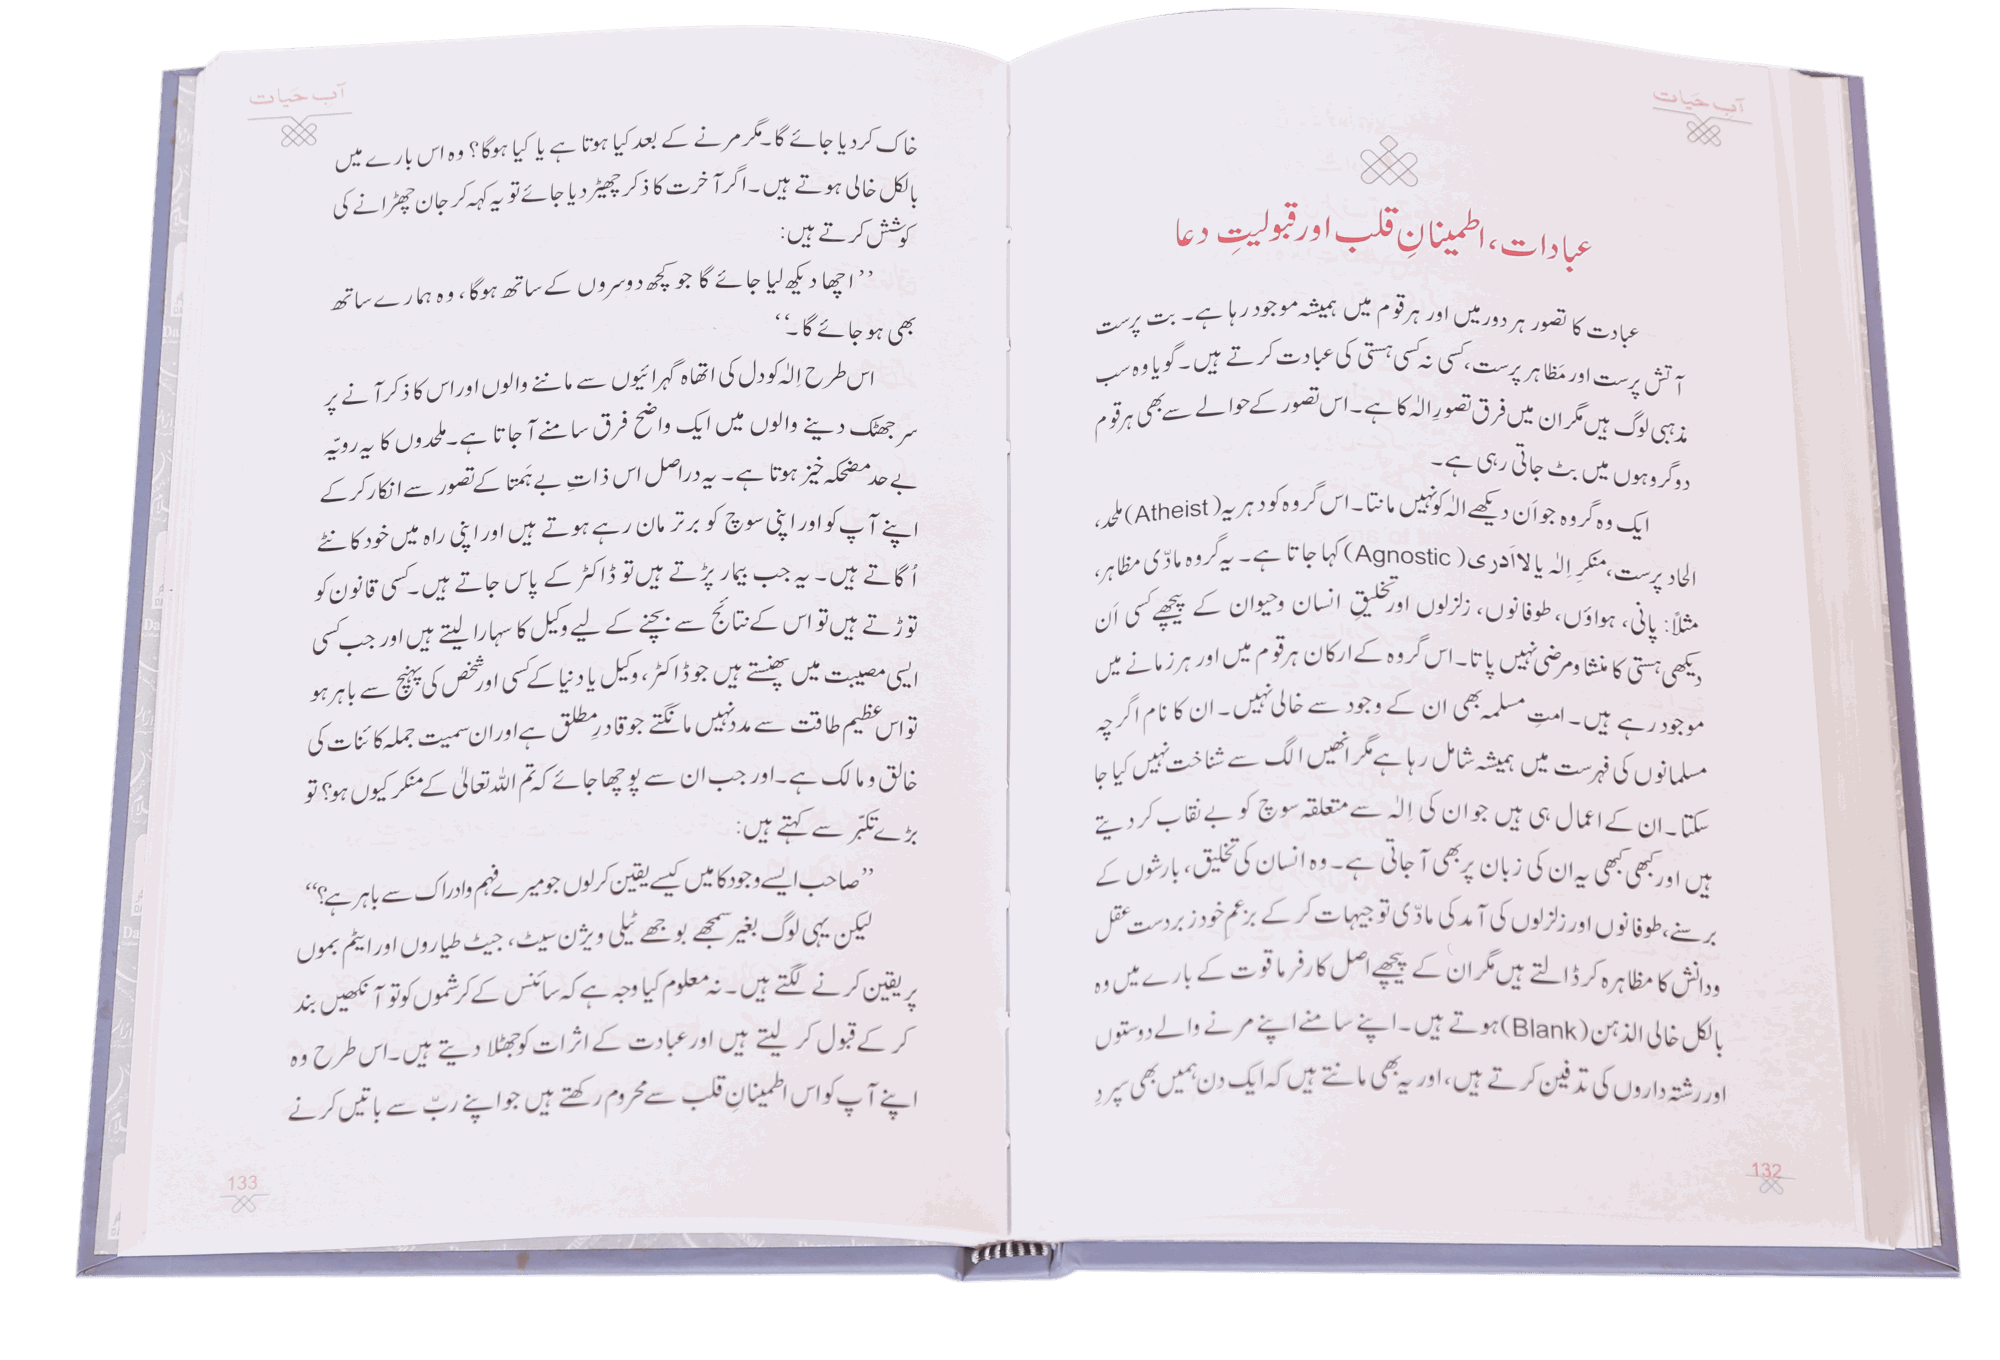 آبِ حیات
عبادات، اطمینانِ قلب اور قبولیتِ دعا
عبادت کا تصور ہر دور میں اور ہر قوم میں ہمیشہ موجود رہا ہے۔ بت پرست
آتش پرست اور مَظاہر پرست، کسی نہ کسی ہستی کی عبادت کرتے ہیں۔ گویا وہ سب
مذہبی لوگ ہیں مگر ان میں فرق تصورِ الٰہ کا ہے۔ اس تصور کے حوالے سے بھی ہر قوم
دو گروہوں میں بٹ جاتی رہی ہے۔
ایک وہ گروہ جو اَن دیکھے الٰہ کو نہیں مانتا۔ اس گروہ کو دہریہ (Atheist) ملحد،
الحاد پرست، منکرِ اِلٰہ یا لااَدری (Agnostic) کہا جاتا ہے۔ یہ گروہ مادّی مظاہر،
مثلاً: پانی، ہواؤں، طوفانوں، زلزلوں اور تخلیقِ انسان وحیوان کے پیچھے کسی اَن
دیکھی ہستی کا منشا ومرضی نہیں پاتا۔ اس گروہ کے ارکان ہر قوم میں اور ہر زمانے میں
موجود رہے ہیں۔ امتِ مسلمہ بھی ان کے وجود سے خالی نہیں۔ ان کا نام اگرچہ
مسلمانوں کی فہرست میں ہمیشہ شامل رہا ہے مگر انھیں الگ سے شناخت نہیں کیا جا
سکتا۔ ان کے اعمال ہی ہیں جو ان کی اِلٰہ سے متعلقہ سوچ کو بے نقاب کر دیتے
ہیں اور کبھی کبھی یہ ان کی زبان پر بھی آ جاتی ہے۔ وہ انسان کی تخلیق، بارشوں کے
برسنے، طوفانوں اور زلزلوں کی آمد کی مادّی توجیہات کر کے بزعمِ خود زبردست عقل
ودانش کا مظاہرہ کر ڈالتے ہیں مگر ان کے پیچھے اصل کارفرما قوت کے بارے میں وہ
بالکل خالی الذہن (Blank) ہوتے ہیں۔ اپنے سامنے اپنے مرنے والے دوستوں
اور رشتہ داروں کی تدفین کرتے ہیں، اور یہ بھی مانتے ہیں کہ ایک دن ہمیں بھی سپردِ
132
آبِ حیات
خاک کر دیا جائے گا۔ مگر مرنے کے بعد کیا ہوتا ہے یا کیا ہوگا؟ وہ اس بارے میں
بالکل خالی ہوتے ہیں۔ اگر آخرت کا ذکر چھیڑ دیا جائے تو یہ کہہ کر جان چھڑانے کی
کوشش کرتے ہیں:
’’اچھا دیکھ لیا جائے گا جو کچھ دوسروں کے ساتھ ہوگا، وہ ہمارے ساتھ
بھی ہو جائے گا۔‘‘
اس طرح اِلٰہ کو دل کی اتھاہ گہرائیوں سے ماننے والوں اور اس کا ذکر آنے پر
سر جھٹک دینے والوں میں ایک واضح فرق سامنے آ جاتا ہے۔ ملحدوں کا یہ رویّہ
بے حد مضحکہ خیز ہوتا ہے۔ یہ دراصل اس ذاتِ بے ہَمتا کے تصور سے انکار کر کے
اپنے آپ کو اور اپنی سوچ کو برتر مان رہے ہوتے ہیں اور اپنی راہ میں خود کانٹے
اُگاتے ہیں۔ یہ جب بیمار پڑتے ہیں تو ڈاکٹر کے پاس جاتے ہیں۔ کسی قانون کو
توڑتے ہیں تو اس کے نتائج سے بچنے کے لیے وکیل کا سہارا لیتے ہیں اور جب کسی
ایسی مصیبت میں پھنستے ہیں جو ڈاکٹر، وکیل یا دنیا کے کسی اور شخص کی پہنچ سے باہر ہو
تو اس عظیم طاقت سے مدد نہیں مانگتے جو قادرِ مطلق ہے اور ان سمیت جملہ کائنات کی
خالق و مالک ہے۔ اور جب ان سے پوچھا جائے کہ تم اللہ تعالیٰ کے منکر کیوں ہو؟ تو
بڑے تکبّر سے کہتے ہیں:
’’صاحب ایسے وجود کا میں کیسے یقین کر لوں جو میرے فہم وادراک سے باہر ہے؟‘‘
لیکن یہی لوگ بغیر سمجھے بوجھے ٹیلی ویژن سیٹ، جیٹ طیاروں اور ایٹم بموں
پر یقین کرنے لگتے ہیں۔ نہ معلوم کیا وجہ ہے کہ سائنس کے کرشموں کو تو آنکھیں بند
کر کے قبول کر لیتے ہیں اور عبادت کے اثرات کو جھٹلا دیتے ہیں۔ اس طرح وہ
اپنے آپ کو اس اطمینانِ قلب سے محروم رکھتے ہیں جو اپنے ربّ سے باتیں کرنے
133